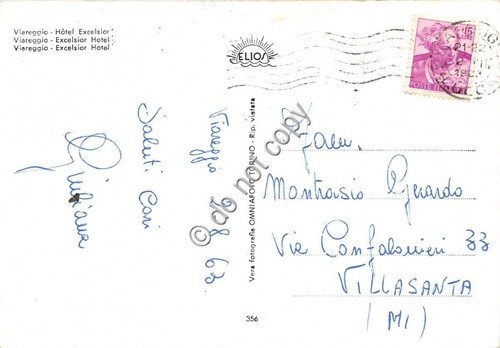 Viareggio - Hôtel Excelsior
Viareggio - Excelsior Hotel
Viareggio - Excelsior Hotel
ELIOS
L. 15
POSTE
Viareggio 29-8-63.
Saluti Cari
Giuliana
Vera fotografia OMNIAFOTO TORINO - Rip. vietata
© do not copy
Fam.
Montrasio Gerardo
Via Confalonieri 33
VILLASANTA
(MI)
356